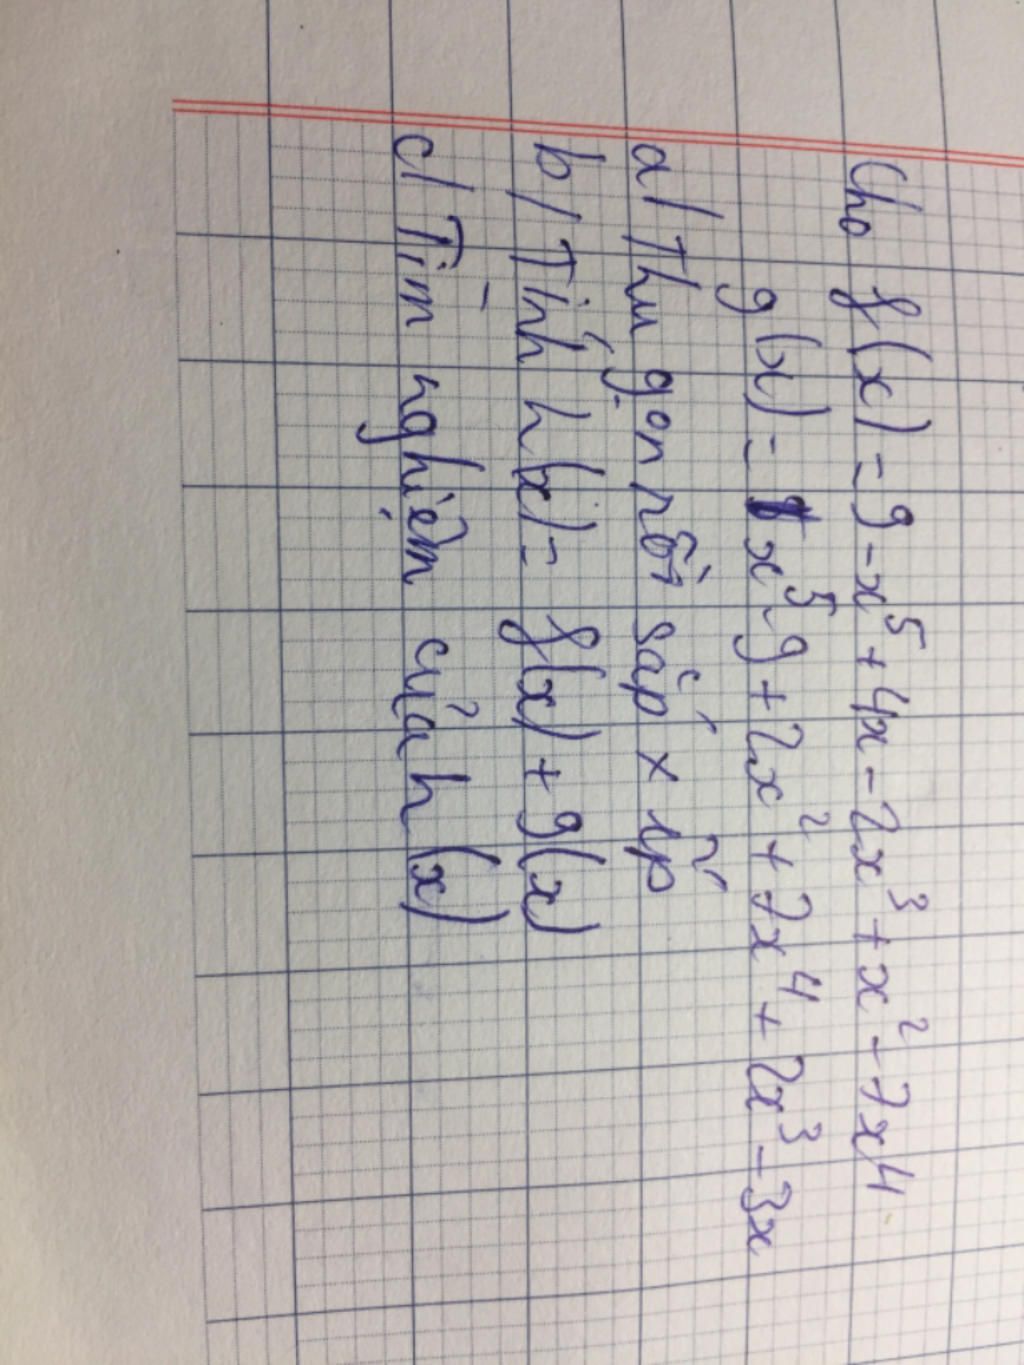 Cho f(x) = 9 - x⁵ + 4x - 2x³ + x² - 7x⁴
g(x) = x⁵ - 9 + 2x² + 7x⁴ + 2x³ - 3x
a/ Thu gọn rồi sắp xếp
b/ Tính h(x) = f(x) + g(x)
c/ Tìm nghiệm của h(x)